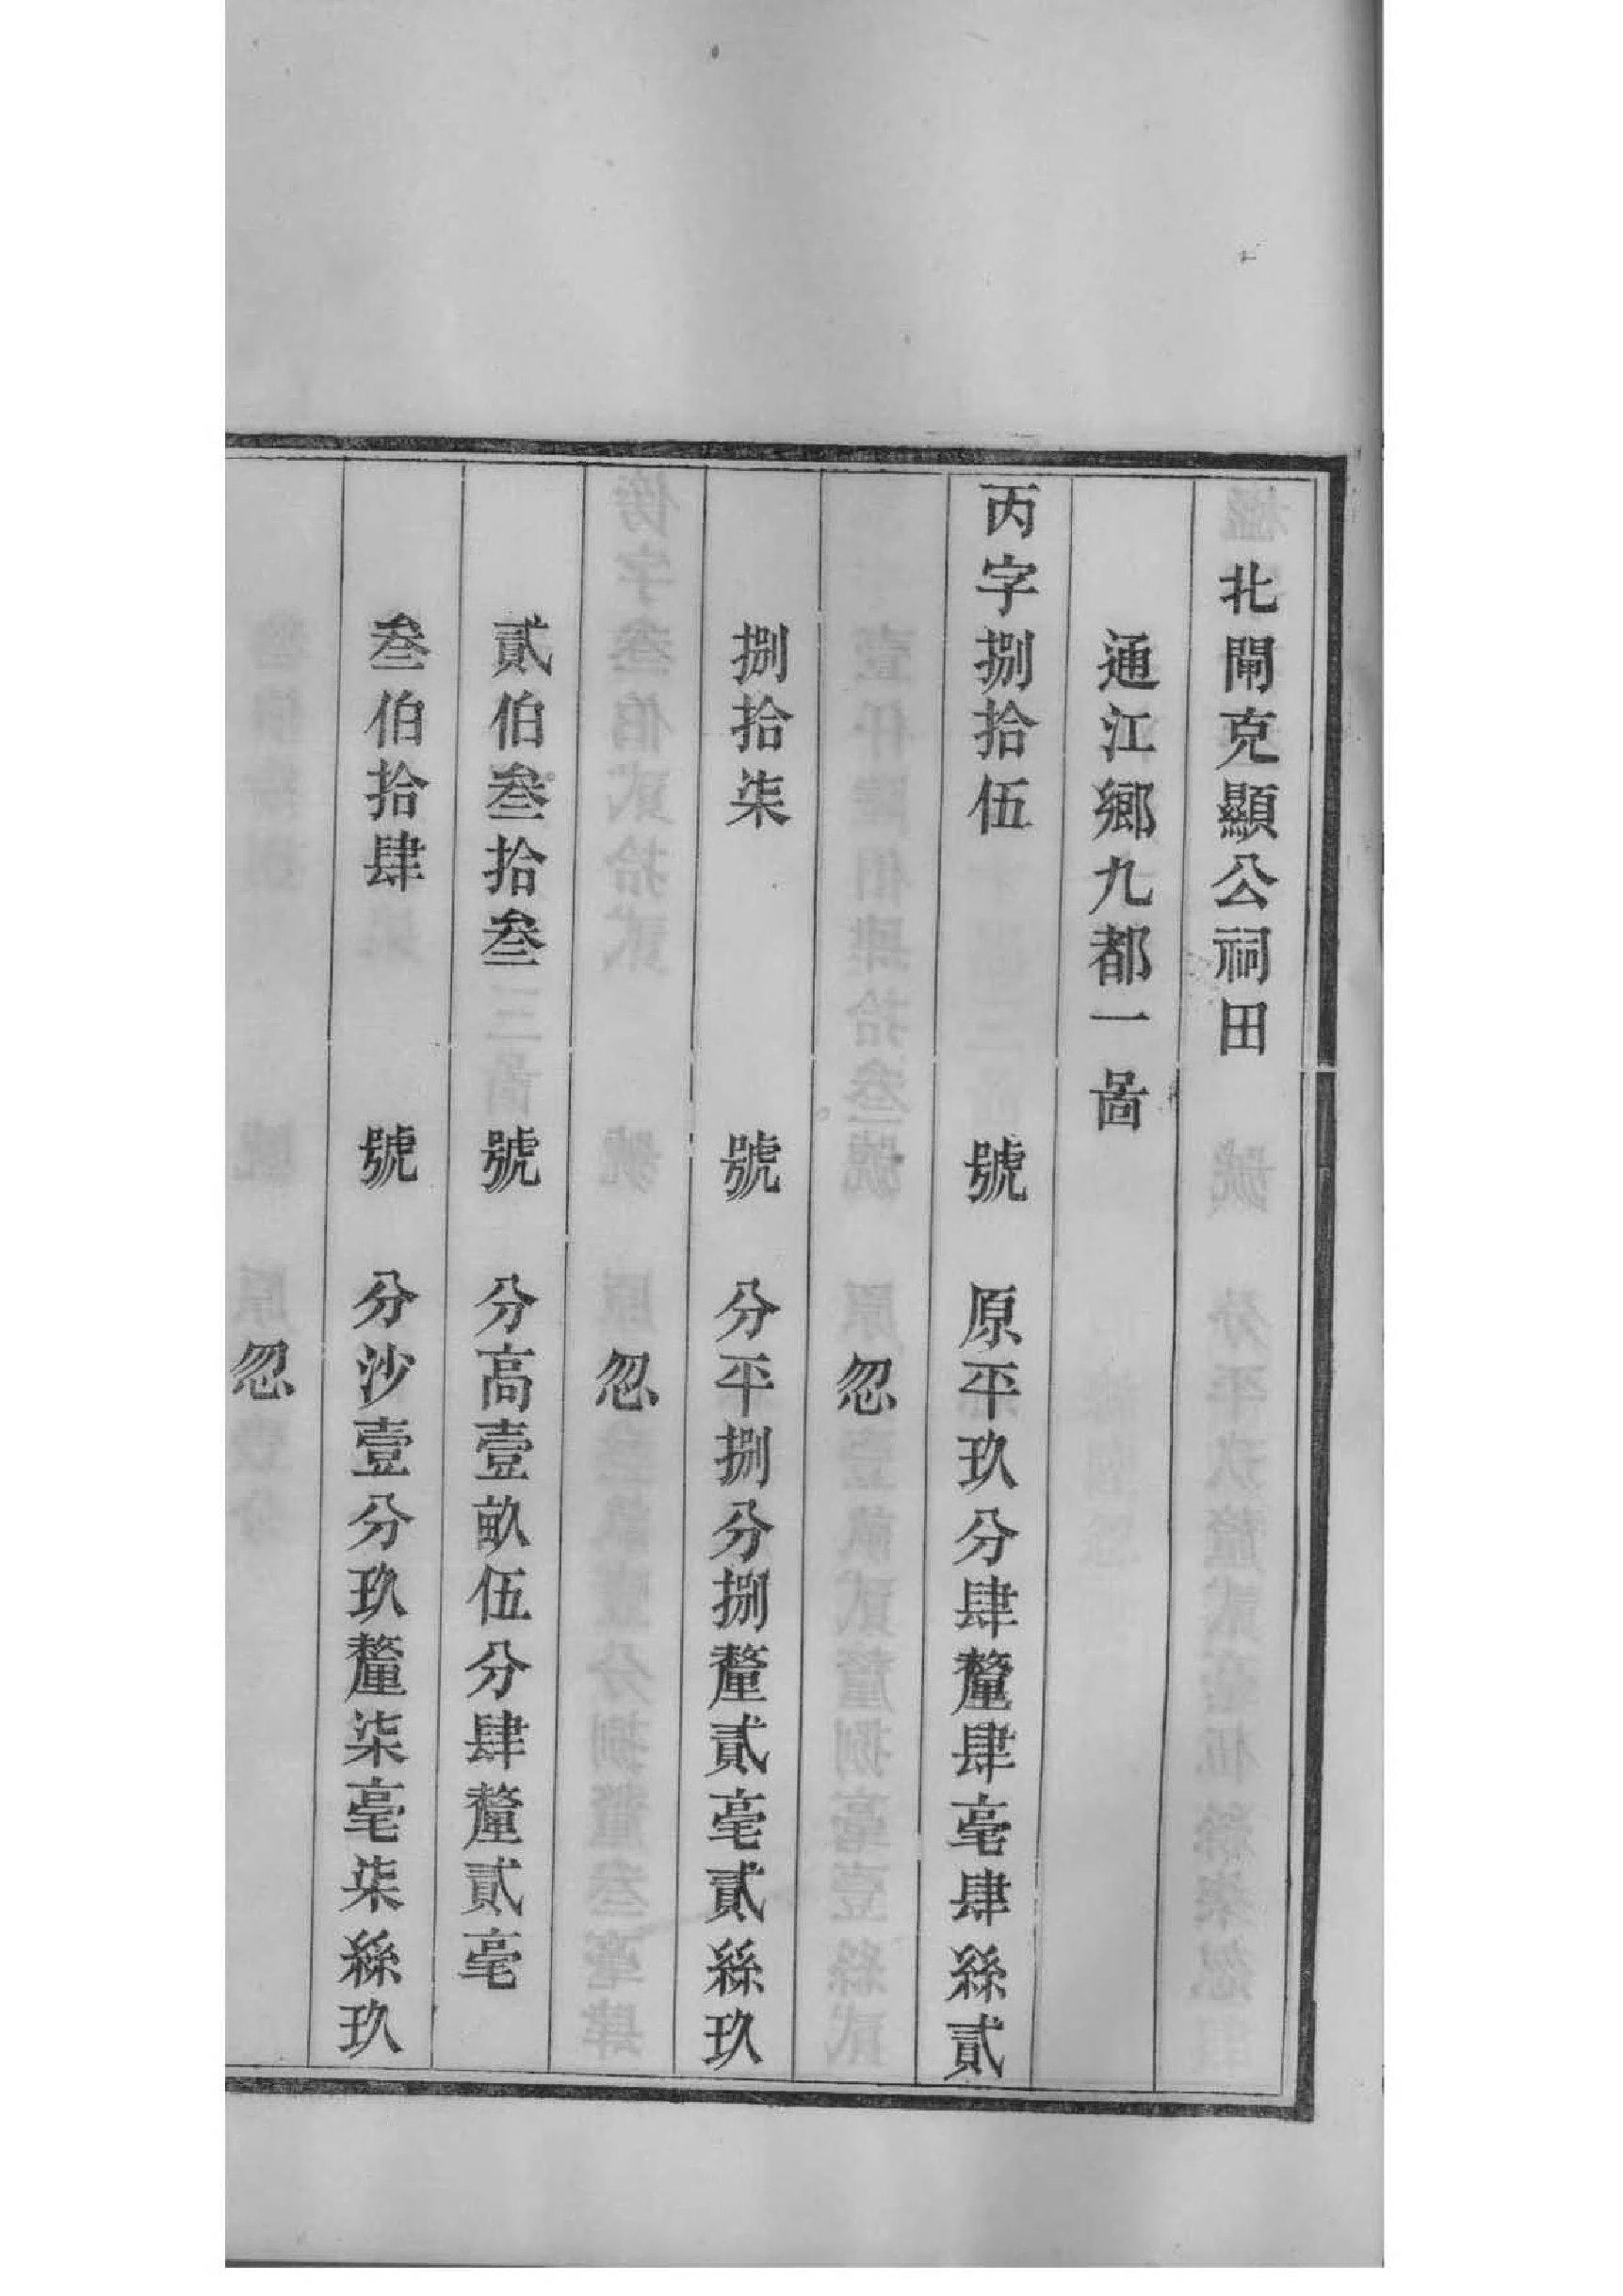 北閘克顯公祠田
通江鄉九都一啚
丙字捌拾伍 號 原平玖分肆釐肆毫肆絲貳
忽
捌拾柒 號 分平捌分捌釐貳毫貳絲玖
忽
貳伯叁拾叁 號 分高壹畝伍分肆釐貳毫
叁伯拾肆 號 分沙壹分玖釐柒毫柒絲玖
忽